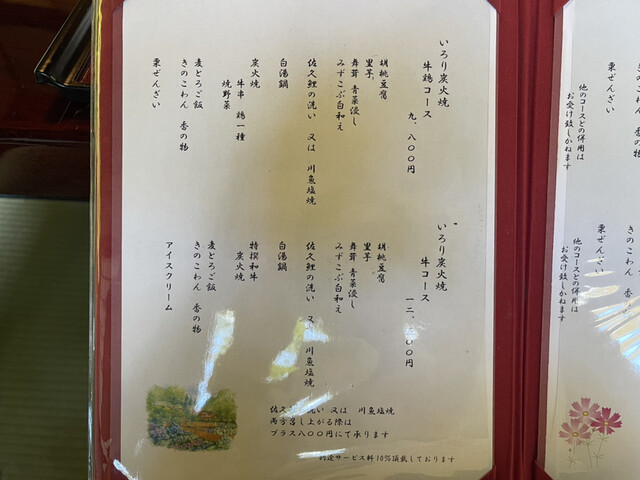 いろり炭火焼
牛鶏コース
九、八〇〇円
胡桃豆腐
里芋
舞茸 青菜浸し
みずこぶ白和え
佐久鯉の洗い 又は 川魚塩焼
白湯鍋
炭火焼
牛串 鶏一種
焼野菜
麦とろご飯
きのこわん 香の物
栗ぜんざい
いろり炭火焼
牛コース
胡桃豆腐
里芋
舞茸 青菜浸し
みずこぶ白和え
佐久鯉の洗い 又は 川魚塩焼
白湯鍋
特撰和牛
炭火焼
麦とろご飯
きのこわん 香の物
アイスクリーム
佐久 洗い 又は 川魚塩焼
両方召し上がる際は
プラス八〇〇円にて承ります
別途サービス料10%頂戴しております
栗ぜんざい
他のコースとの併用は
お受け致しかねます
栗ぜんざい
きのこわん 香の物
他のコースとの併用は
お受け致しかねます